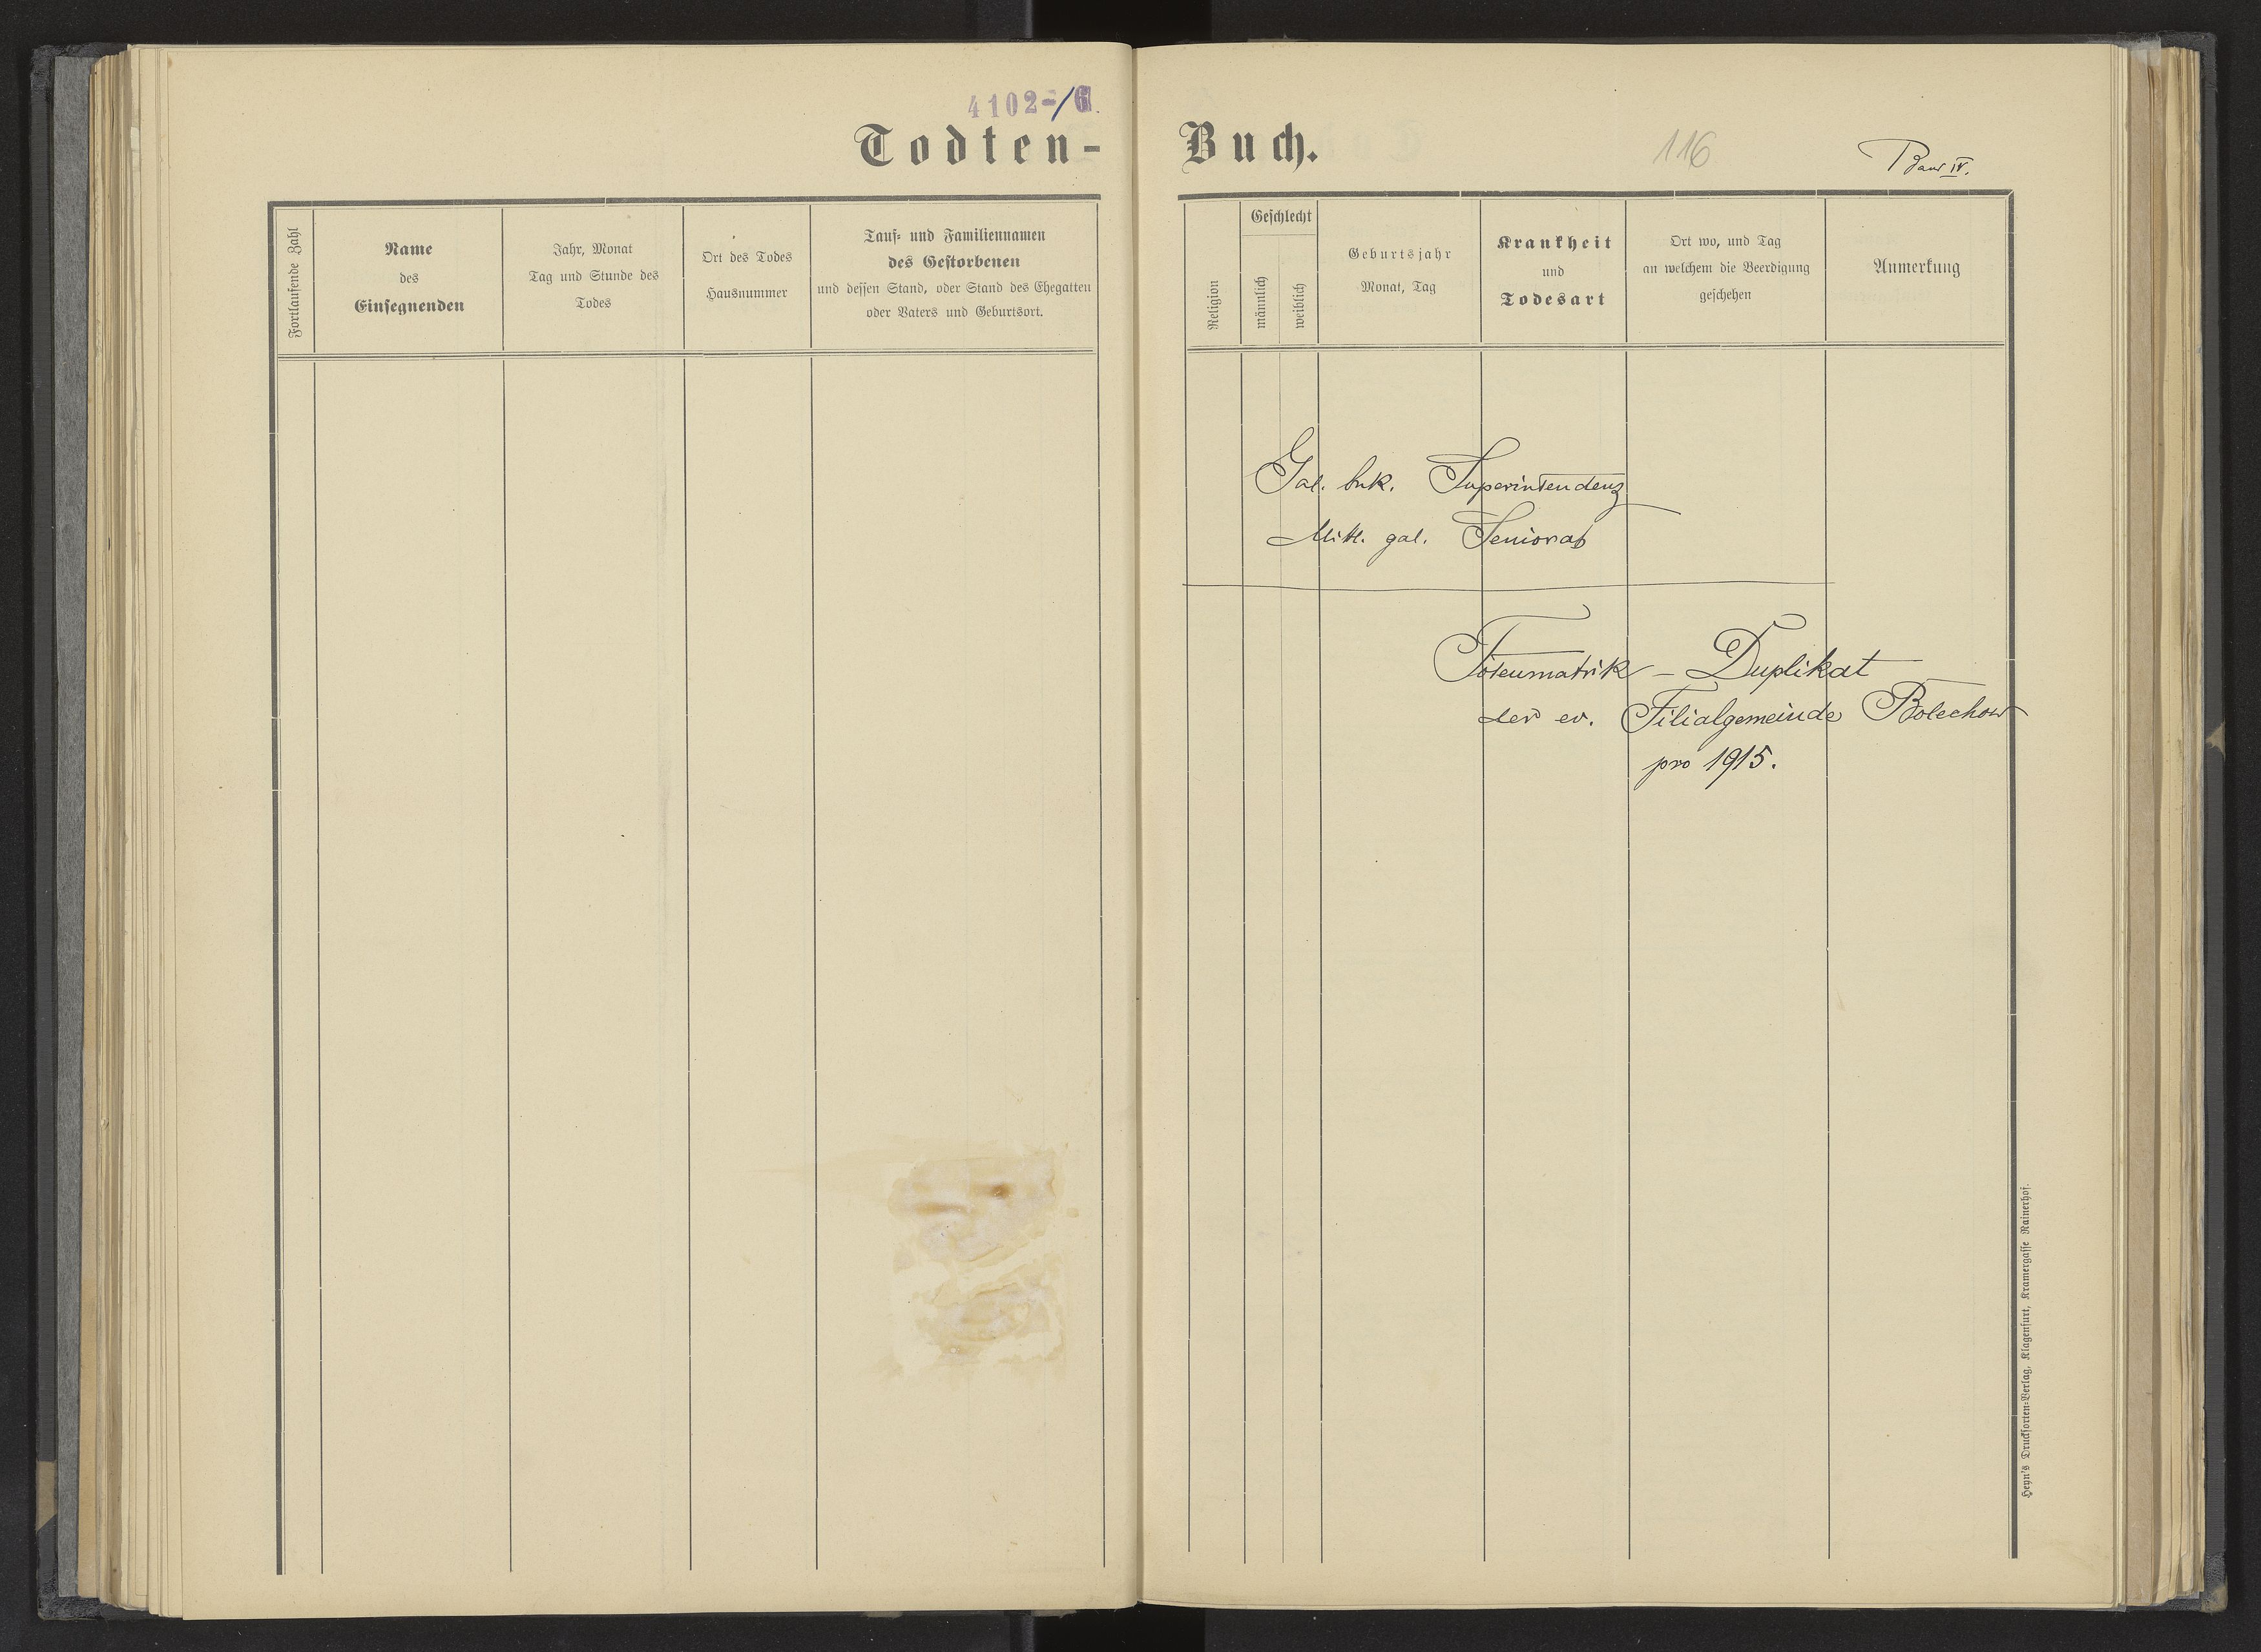 4102-/
Todten-
Fortlaufende Zahl
Name
des
Einsegnenden
Jahr, Monat
Tag und Stunde des
Todes
Ort des Todes
Hausnummer
Tauf- und Familiennamen
des Gestorbenen
und dessen Stand, oder Stand des Ehegatten
oder Vaters und Geburtsort.
Buch.
116
Band IV.
Religion
Geschlecht
männlich
weiblich
Geburtsjahr
Monat, Tag
Krankheit
und
Todesart
Ort wo, und Tag
an welchem die Beerdigung
geschehen
Anmerkung
Gal. buk. Superintendenz
Mittl. gal. Seniorat
Totenmatrik - Duplikat
der ev. Filialgemeinde Bolechow
pro 1915.
Heyn's Drucksorten-Verlag, Klagenfurt, Kramergasse Rainerhof.